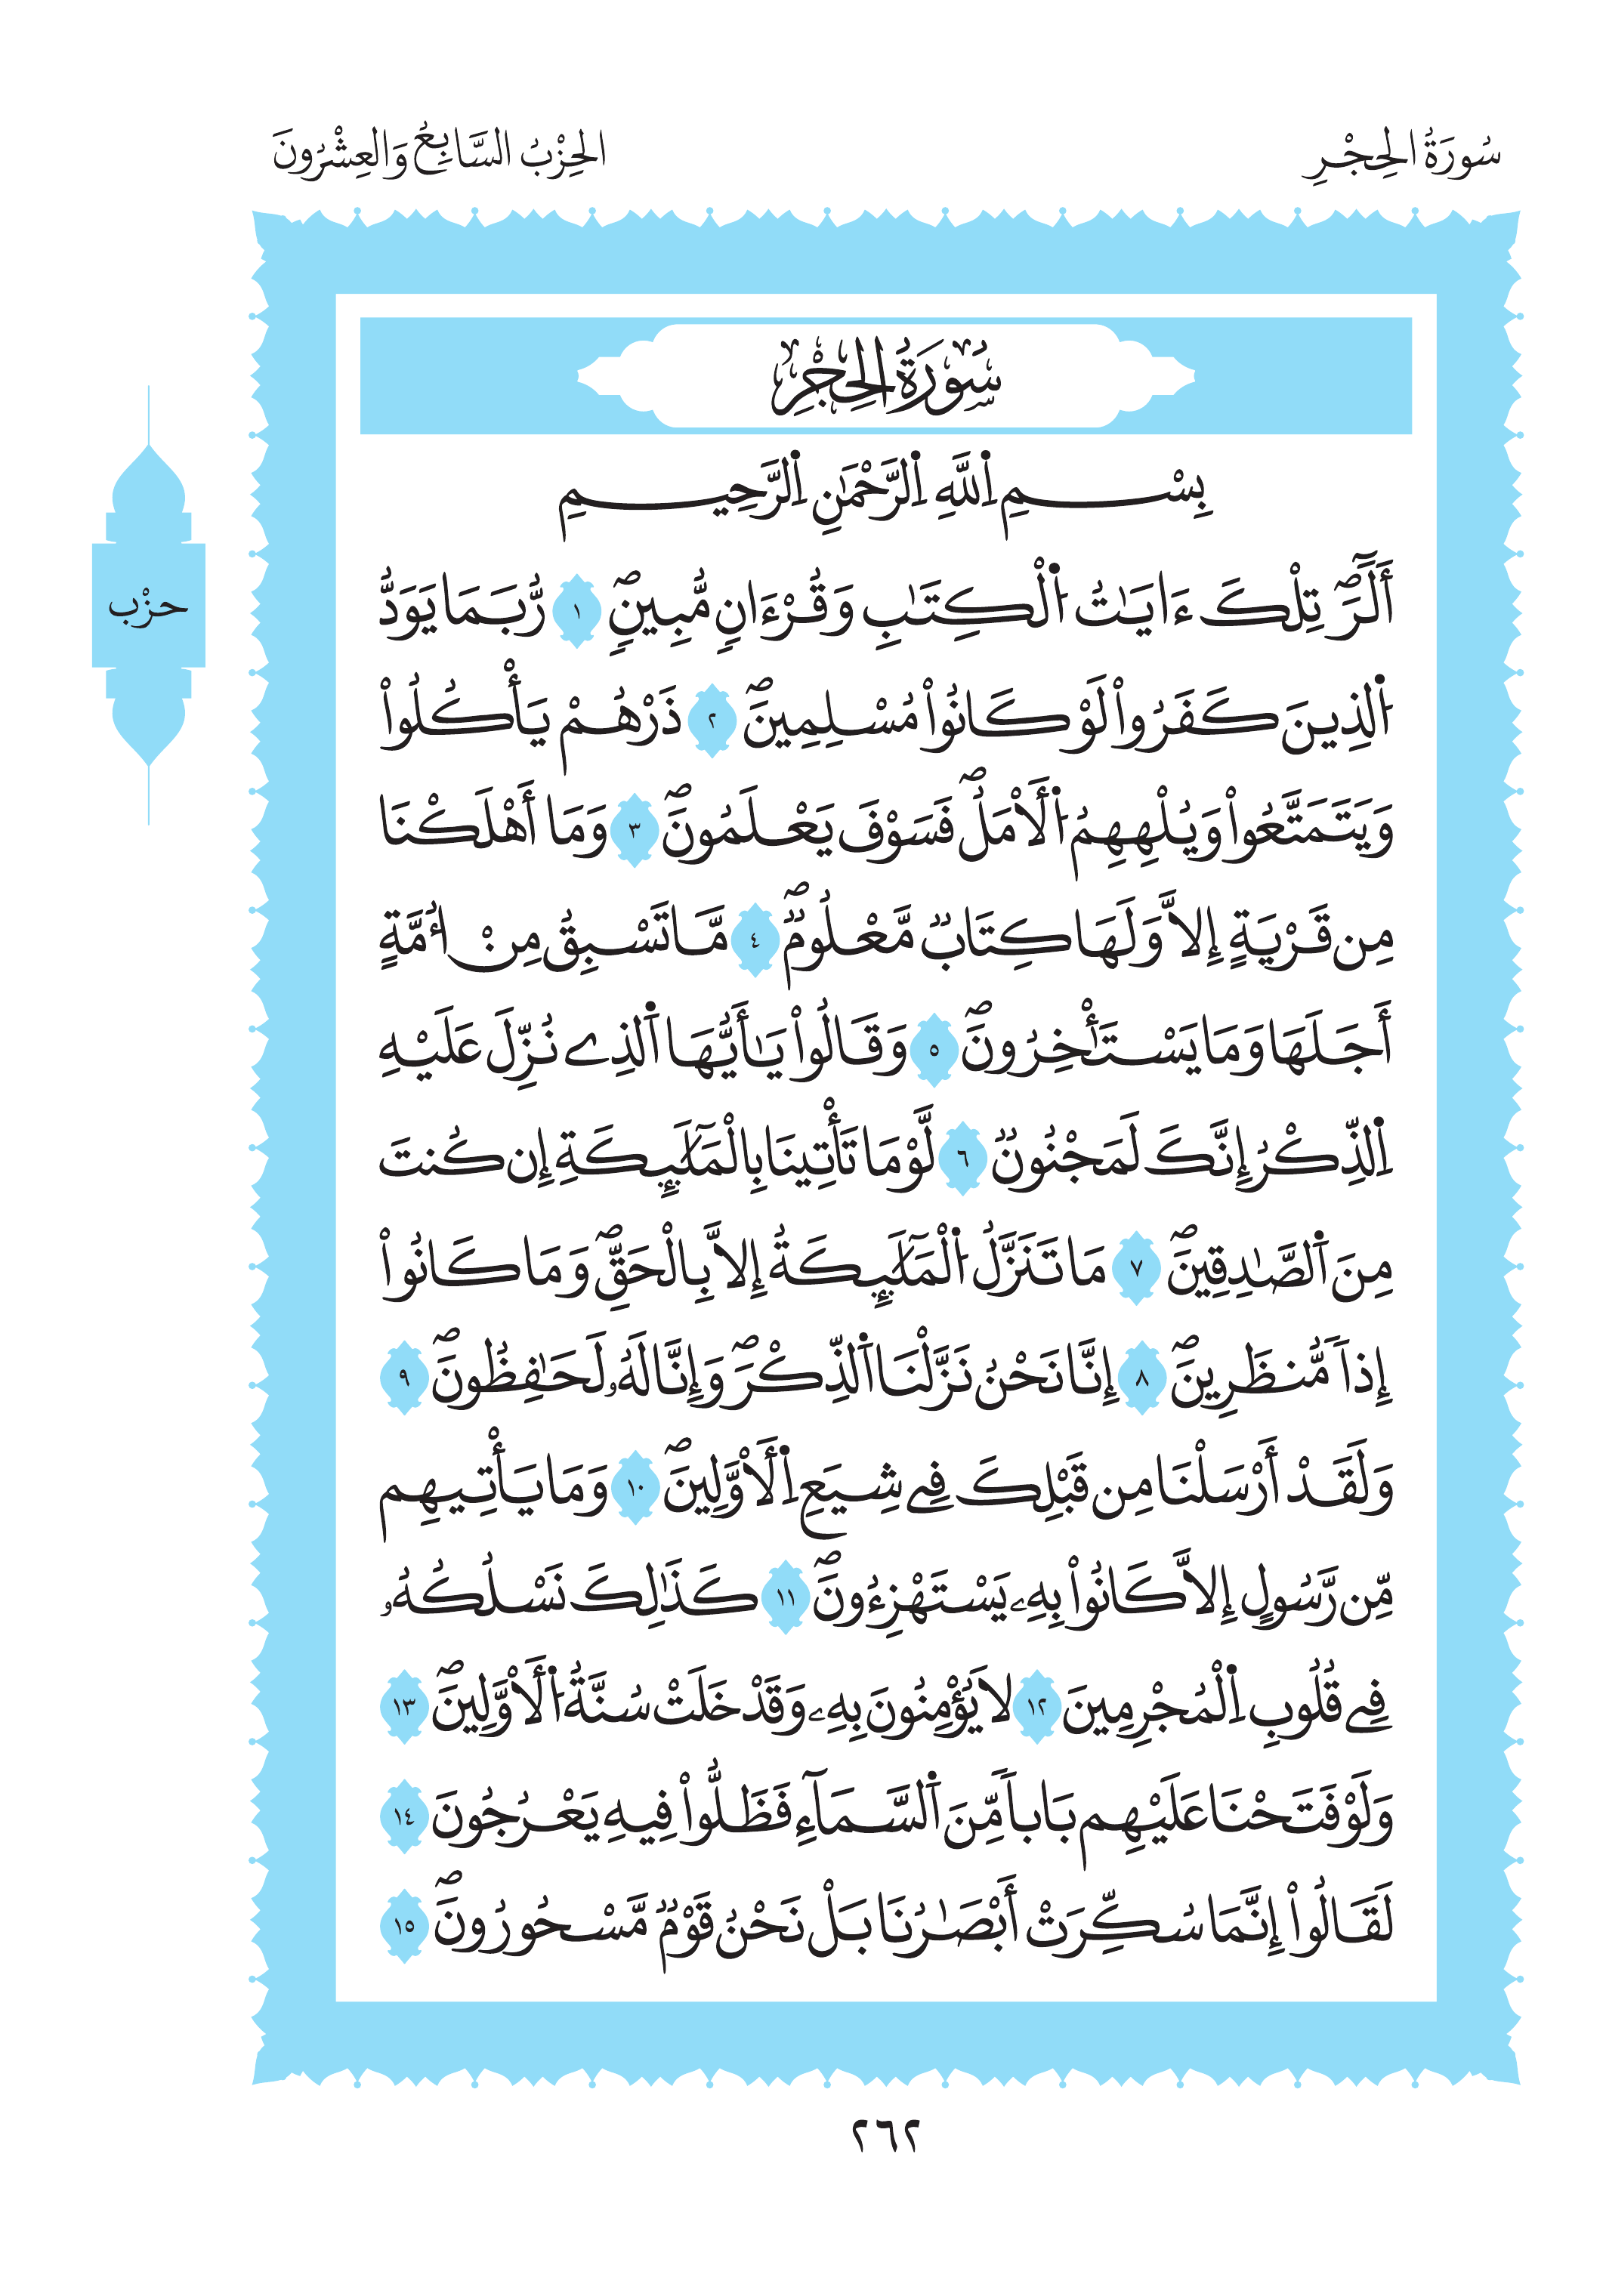 سُورَةُ الحِجْرِ
الحِزْبُ السَّابِعُ وَالعِشْرُونَ
سُورَةُ الحِجْرِ
بِسْمِ اِ۬للَّهِ اِ۬لرَّحْمَٰنِ اِ۬لرَّحِيمِ
أَلَٓرَۖ تِلْكَ ءَايَٰتُ اُ۬لْكِتَٰبِ وَقُرْءَانٖ مُّبِينٖۖ ١ رُّبَمَا يَوَدُّ
حزْب
اُ۬لذِينَ كَفَرُواْ لَوْ كَانُواْ مُسْلِمِينَۖ ٢ ذَرْهُمْ يَأْكُلُواْ
وَيَتَمَتَّعُواْ وَيُلْهِهِمُ اُ۬لَامَلُۖ فَسَوْفَ يَعْلَمُونَۖ ٣ وَمَا أَهْلَكْنَا
مِن قَرْيَةٍ إِلاَّ وَلَهَا كِتَابٞ مَّعْلُومٞۖ ٤ مَّا تَسْبِقُ مِنُ ا۟مَّةٍ
أَجَلَهَا وَمَا يَسْتَأْخِرُونَۖ ٥ وَقَالُواْ يَٰأَيُّهَا اَ۬لذِے نُزِّلَ عَلَيْهِ
اِ۬لذِّكْرُ إِنَّكَ لَمَجْنُونٞ ٦ لَّوْ مَا تَأْتِينَا بِالْمَلَٰٓئِكَةِ إِن كُنتَ
مِنَ اَ۬لصَّٰدِقِينَۖ ٧ مَا تَنَزَّلُ اُ۬لْمَلَٰٓئِكَةُ إِلاَّ بِالْحَقِّۖ وَمَا كَانُواْ
إِذاٗ مُّنظَرِينَۖ ٨ إِنَّا نَحْنُ نَزَّلْنَا اَ۬لذِّكْرَۖ وَإِنَّا لَهُۥ لَحَٰفِظُونَۖ ٩
وَلَقَدْ أَرْسَلْنَا مِن قَبْلِكَ فِے شِيَعِ اِ۬لَاوَّلِينَۖ ١٠ وَمَا يَأْتِيهِم
مِّن رَّسُولٍ إِلاَّ كَانُواْ بِهِۦ يَسْتَهْزِءُونَۖ ١١ كَذَٰلِكَ نَسْلُكُهُۥ
فِے قُلُوبِ اِ۬لْمُجْرِمِينَ ١٢ لَا يُؤْمِنُونَ بِهِۦ وَقَدْ خَلَتْ سُنَّةُ اُ۬لَاوَّلِينَۖ ١٣
وَلَوْ فَتَحْنَا عَلَيْهِم بَاباٗ مِّنَ اَ۬لسَّمَآءِ فَظَلُّواْ فِيهِ يَعْرُجُونَ ١٤
لَقَالُواْ إِنَّمَا سُكِّرَتْ أَبْصَٰرُنَا بَلْ نَحْنُ قَوْمٞ مَّسْحُورُونَۖ ١٥
٢٦٢